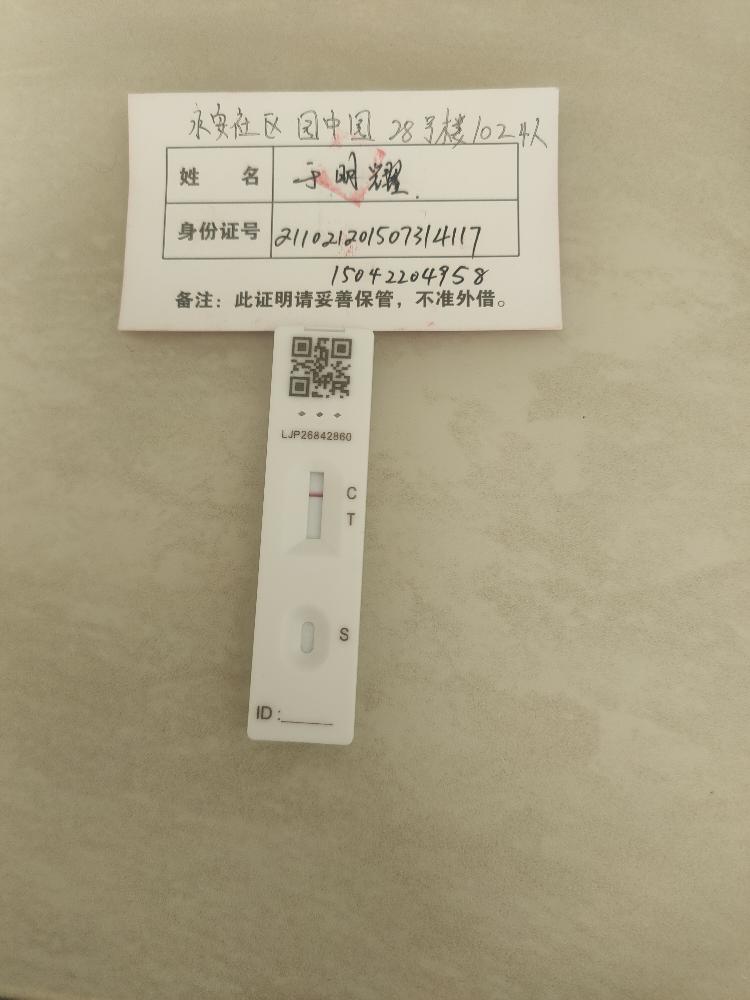 永安社区 园中园 28号楼102 4人
姓 名 于明耀.
身份证号 211021201507314117
15042204958
备注：此证明请妥善保管，不准外借。
LJP26842860
C
T
S
ID:______